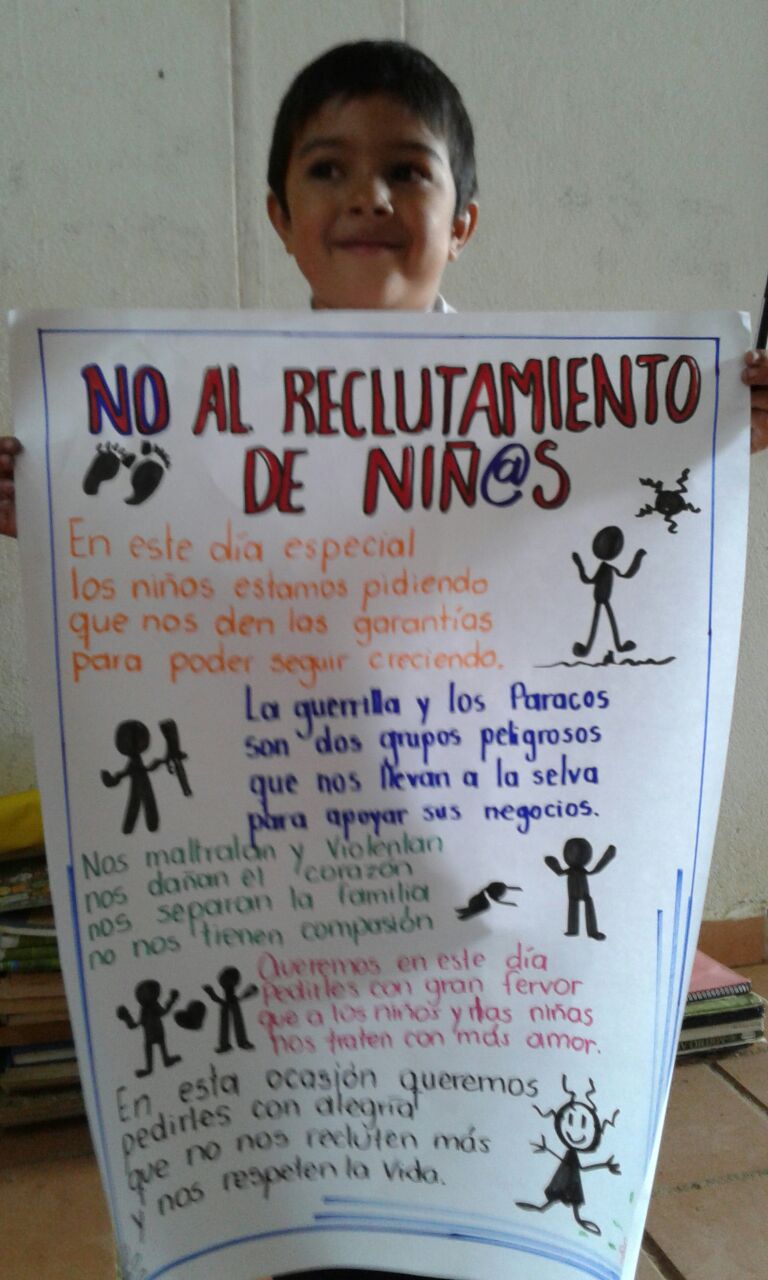 NO AL RECLUTAMIENTO
DE NIÑ@S
En este día especial
los niños estamos pidiendo
que nos den las garantías
para poder seguir creciendo.
La guerrilla y los Paracos
son dos grupos peligrosos
que nos llevan a la selva
para apoyar sus negocios.
Nos maltratan y violentan
nos dañan el corazón
nos separan la familia
no nos tienen compasión
Queremos en este día
pedirles con gran fervor
que a los niños y las niñas
nos traten con más amor.
En esta ocasión queremos
pedirles con alegría
que no nos recluten más
y nos respeten la vida.